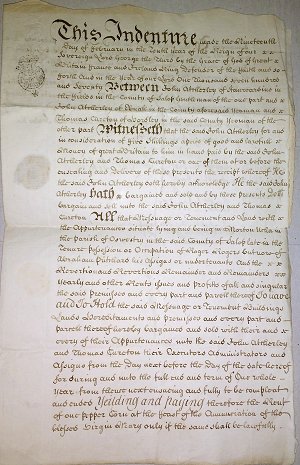 This Indenture made the Nineteenth
Day of February in the Tenth Year of the Reign of our
Sovereign Lord George the Third by the Grace of God of Great
Britain France and Ireland King Defender of the Faith and so
forth And in the Year of our Lord One thousand seven hundred
and Seventy Between John Atherley of
in the County of Salop Gentleman of the one part and
John Atherley of in the County aforesaid Yeoman and
Thomas Cureton of in the said County Yeoman of the
other part Witnesseth that the said John Atherley for and
in consideration of five Shillings apiece of good and lawful
Money of great Britain to him in hand paid by the said John
Atherley and Thomas Cureton or one of them at or before the
ensealing and Delivery of these presents the receipt whereof
the said John Atherley doth hereby acknowledge He the said John
Atherley hath bargained and sold and by these presents Doth
bargain and sell unto the said John Atherley and Thomas
Cureton All that Messuage or Tenement and Lands with the
Appurtenances situate lying and being in
the parish of Oswestry in the said County of Salop late in the
Tenure possession or Occupation of Roger Rogers but now of
Abraham his Assigns or undertenants And the
Reversion and Reversions Remainder and Remainders
Yearly and other Rents Issues and Profits of all and singular
the said premises and every part and parcell thereof To have
and To Hold the said Messuage or Tenement Buildings
Lands Hereditaments and premises and every part and
parcell thereof hereby bargained and sold with their and
every of their Appurtenances unto the said John Atherley
and Thomas Cureton their Executors Administrators and
Assigns from the Day next before the Day of the date hereof
for during and unto the full end and term of One whole
Year from thence next ensuing and fully to be compleat
and ended Yeilding and paying therefore the Rent
of one pepper Corn at the feast of the Annunciation of the
blessed Virgin Mary only if the same shall be lawfully